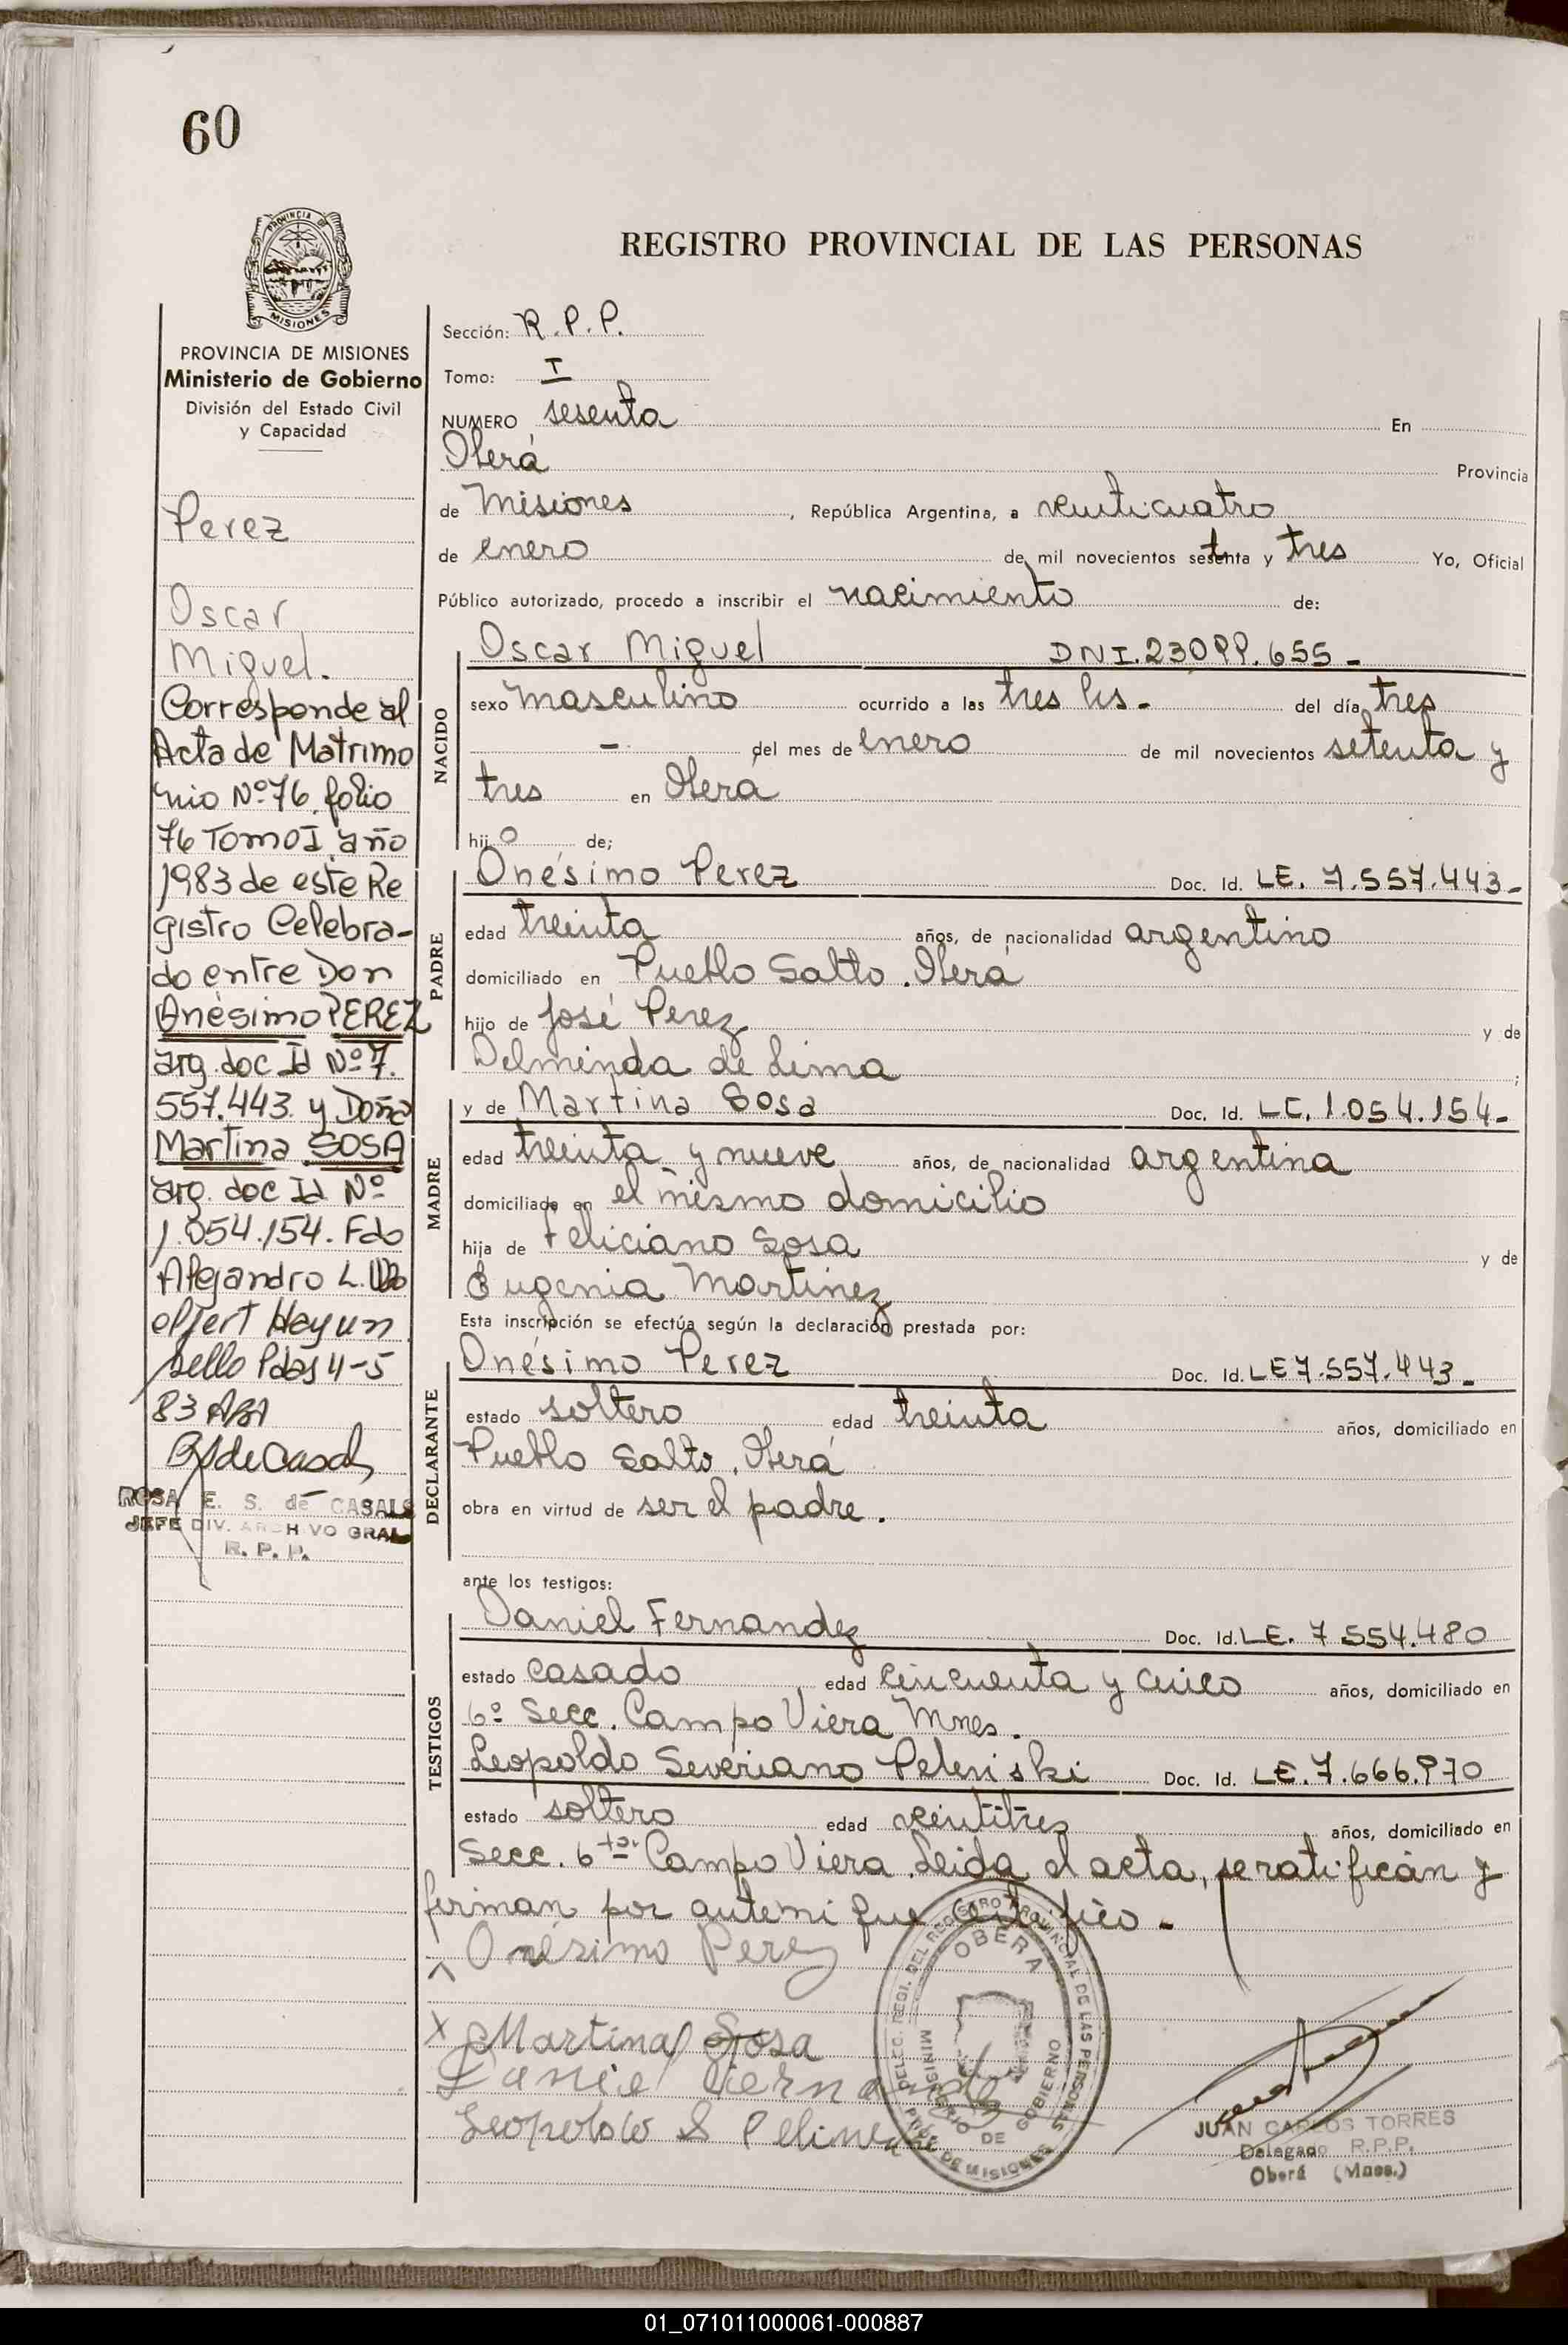 60
PROVINCIA DE
MISIONES
PROVINCIA DE MISIONES
Ministerio de Gobierno
División del Estado Civil
y Capacidad
Perez
Oscar
Miguel.
Corresponde al
Acta de Matrimo
nio Nº 76 folio
76 Tomo I año
1983 de este Re
gistro Celebra-
do entre Don
Onésimo PEREZ
arg. doc Id Nº 7.
557.443. y Doña
Martina SOSA
arg. doc Id Nº
1.054.154. Fdo
Alejandro L.
Hay un
sello Pdas 4-5
83
ROSA E. S. de CASALS
JEFE DIV. ARCHIVO GRAL
R. P. P.
REGISTRO PROVINCIAL DE LAS PERSONAS
Sección: R.P.P.
Tomo: I
NUMERO sesenta En
Oberá Provincia
de Misiones, República Argentina, a veinticuatro
de enero de mil novecientos setenta y tres Yo, Oficial
Público autorizado, procedo a inscribir el nacimiento de:
NACIDO
Oscar Miguel DNI. 23099.655-
sexo masculino ocurrido a las tres hs- del día tres
- del mes de enero de mil novecientos setenta y
tres en Oberá
hijo de;
PADRE
Onésimo Perez Doc. Id. LE. 7.557.443-
edad treinta años, de nacionalidad argentino
domiciliado en Pueblo Salto. Oberá
hijo de José Perez y de
Delminda de Lima;
MADRE
y de Martina Sosa Doc. Id. LC. 1.054.154-
edad treinta y nueve años, de nacionalidad argentina
domiciliada en el mismo domicilio
hija de Feliciano Sosa y de
Eugenia Martinez
Esta inscripción se efectúa según la declaración prestada por:
DECLARANTE
Onésimo Perez Doc. Id. LE 7.557.443-
estado soltero edad treinta años, domiciliado en
Pueblo Salto. Oberá
obra en virtud de ser el padre.
ante los testigos:
TESTIGOS
Daniel Fernandez Doc. Id. LE. 7.554.480
estado casado edad cincuenta y cinco años, domiciliado en
6º Secc. Campo Viera Mnes.
Leopoldo Severiano Peleniski Doc. Id. LE. 7.666.970
estado soltero edad veintitres años, domiciliado en
Secc. 6ta. Campo Viera. Leida el acta, se ratifican y
firman por ante mi que certifico-
Onésimo Perez
x Martina Sosa
Daniel Fernandez
Leopoldo S
DELEG. REGI. DEL REGISTRO PROVINCIAL DE LAS PERSONAS
OBERA
MINISTERIO DE GOBIERNO
DE MISIONES
JUAN CARLOS TORRES
Delegado R.P.P.
Oberá (Mnes.)
01_071011000061-000887